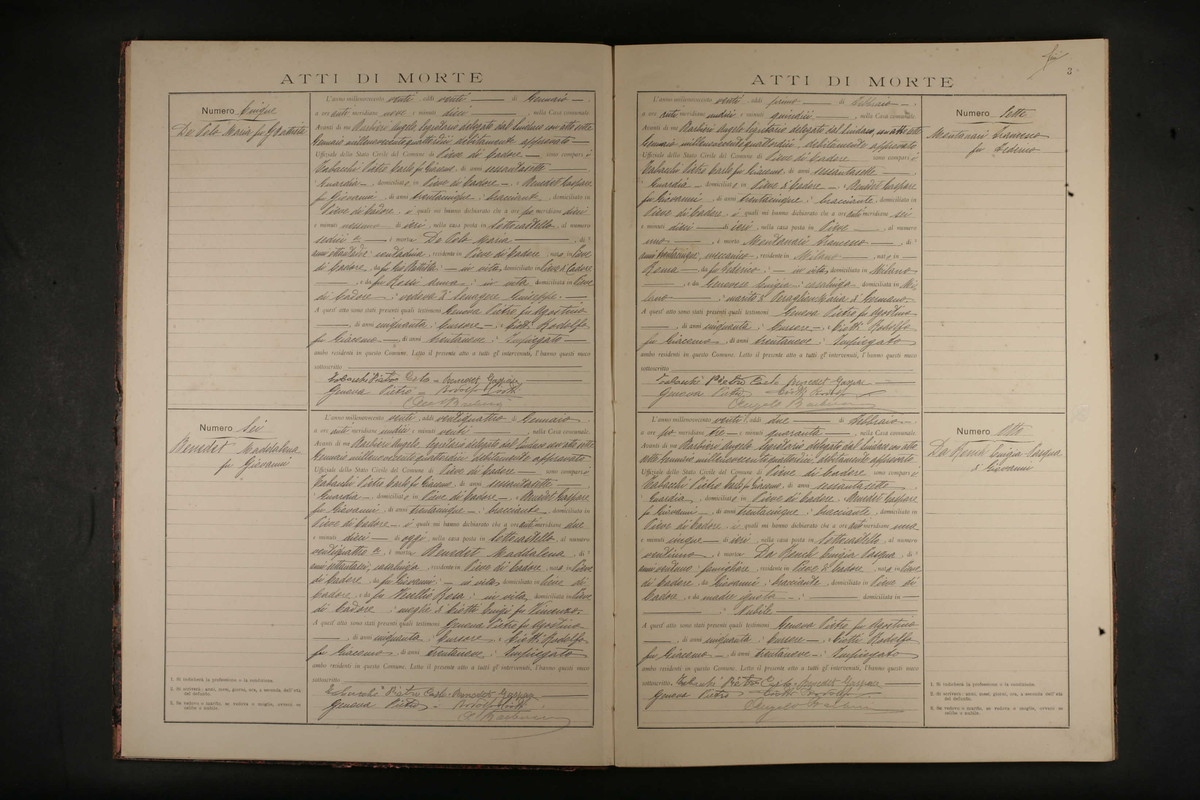 ATTI DI MORTE
Numero Cinque
Da Col Maria fu G. Battista
L'anno millenovecento venti, addì venti di Gennaio,
a ore anti meridiane nove e minuti dieci, nella Casa comunale.
Avanti di me Barbieri Angelo Segretario delegato dal Sindaco con atto
Gennaio millenovecentoquattordici, debitamente approvato
Uffiziale dello Stato Civile del Comune di Pieve di Cadore, sono comparsi
Tabacchi Pietro Carlo fu Giacomo, di anni sessantasette,
Guardia, domiciliato in Pieve di Cadore, e Benedet Gaspare
fu Giovanni, di anni trentacinque, bracciante, domiciliato in
Pieve di Cadore, i quali mi hanno dichiarato che a ore meridiane
e minuti di ieri, nella casa posta in Sottocastello, al numero
sedici, è morta Da Col Maria, di
anni contadina, residente in Pieve di Cadore, nata in Pieve
di Cadore, da fu Gio Battista, in vita, domiciliato in Pieve di Cadore
, e da fu Anna, in vita domiciliata in Pieve
di Cadore, vedova di Giuseppe.
A quest'atto sono stati presenti quali testimoni Genova Pietro fu Agostino
, di anni cinquanta, Cursore, e Ciotti Rodolfo
fu Giacomo, di anni trentanove, Impiegato,
ambo residenti in questo Comune. Letto il presente atto a tutti gl'intervenuti, l'hanno questi meco
sottoscritto
Tabacchi Pietro Carlo - Benedet Gaspare
Genova Pietro - Rodolfo Ciotti
Numero Sei
Benedet Maddalena
fu Giovanni
L'anno millenovecento venti, addì ventiquattro di Gennaio,
a ore anti meridiane undici e minuti venti, nella Casa comunale.
Avanti di me Barbieri Angelo Segretario delegato dal Sindaco con atto
Gennaio millenovecentoquattordici debitamente approvato
Uffiziale dello Stato Civile del Comune di Pieve di Cadore, sono comparsi
Tabacchi Pietro Carlo fu Giacomo, di anni sessantasette,
Guardia, domiciliato in Pieve di Cadore, e Benedet Gaspare
fu Giovanni, di anni trentacinque, bracciante, domiciliato in
Pieve di Cadore, i quali mi hanno dichiarato che a ore anti meridiane due
e minuti dieci di oggi, nella casa posta in Sottocastello, al numero
ventiquattro, è morta Benedet Maddalena, di
anni casalinga, residente in Pieve di Cadore, nata in Pieve
di Cadore, da fu Giovanni, in vita, domiciliato in Pieve di
Cadore, e da fu Rosa, in vita, domiciliata in Pieve
di Cadore, moglie di Ciotti Luigi fu Vincenzo.
A quest'atto sono stati presenti quali testimoni Genova Pietro fu Agostino
, di anni cinquanta, Cursore, e Ciotti Rodolfo
fu Giacomo, di anni trentanove, Impiegato,
ambo residenti in questo Comune. Letto il presente atto a tutti gl'intervenuti, l'hanno questi meco
sottoscritto
Tabacchi Pietro Carlo - Benedet Gaspare
Genova Pietro - Rodolfo Ciotti
A. Barbieri
1. Si indicherà la professione o la condizione.
2. Si scriverà: anni, mesi, giorni, ore, a seconda dell'età del defunto.
3. Se vedovo o marito, se vedova o moglie, ovvero se celibe o nubile.
ATTI DI MORTE
3
L'anno millenovecento venti, addì primo di Febbraio,
a ore anti meridiane undici e minuti quindici, nella Casa comunale.
Avanti di me Barbieri Angelo Segretario delegato dal Sindaco, con atto
Gennaio millenovecentoquattordici, debitamente approvato
Uffiziale dello Stato Civile del Comune di Pieve di Cadore, sono comparsi
Tabacchi Pietro Carlo fu Giacomo, di anni sessantasette,
Guardia, domiciliato in Pieve di Cadore, e Benedet Gaspare
fu Giovanni, di anni trentacinque, bracciante, domiciliato in
Pieve di Cadore, i quali mi hanno dichiarato che a ore anti meridiane sei
e minuti dieci di ieri, nella casa posta in Pieve, al numero
uno, è morto Montanari Francesco, di
anni meccanico, residente in Milano, nato in
Roma, da fu Federico, in vita, domiciliato in Milano
, e da casalinga, domiciliata in Mi-
lano, marito di Maria di Germano
A quest'atto sono stati presenti quali testimoni Genova Pietro fu Agostino
, di anni cinquanta, Cursore, e Ciotti Rodolfo
fu Giacomo, di anni trentanove, Impiegato
ambo residenti in questo Comune. Letto il presente atto a tutti gl'intervenuti, l'hanno questi meco
sottoscritto
Tabacchi Pietro Carlo Benedet Gaspare
Genova Pietro Ciotti Rodolfo
Angelo Barbieri
Numero Sette
Montanari Francesco
fu Federico
L'anno millenovecento venti, addì due di Febbraio,
a ore po meridiane tre e minuti quaranta, nella Casa comunale.
Avanti di me Barbieri Angelo Segretario delegato dal Sindaco con atto
Gennaio millenovecentoquattordici, debitamente approvato
Uffiziale dello Stato Civile del Comune di Pieve di Cadore, sono comparsi
Tabacchi Pietro Carlo fu Giacomo, di anni sessantasette,
Guardia, domiciliato in Pieve di Cadore, e Benedet Gaspare
fu Giovanni, di anni trentacinque, bracciante, domiciliato in
Pieve di Cadore, i quali mi hanno dichiarato che a ore anti meridiane una
e minuti cinque di ieri, nella casa posta in Sottocastello, al numero
ventiuno, è morta Luigia Pasqua, di
anni ventuno, residente in Pieve di Cadore, nata in Pieve
di Cadore, da Giovanni, bracciante, domiciliato in Pieve di
Cadore, e da madre ignota, domiciliata in
Nubile
A quest'atto sono stati presenti quali testimoni Genova Pietro fu Agostino
, di anni cinquanta, Cursore, e Ciotti Rodolfo
fu Giacomo, di anni trentanove, Impiegato
ambo residenti in questo Comune. Letto il presente atto a tutti gl'intervenuti, l'hanno questi meco
sottoscritto
Tabacchi Pietro Carlo Benedet Gaspare
Genova Pietro Ciotti Rodolfo
Angelo Barbieri
Numero Otto
Luigia Pasqua
di Giovanni
1. Si indicherà la professione o la condizione.
2. Si scriverà: anni, mesi, giorni, ore, a seconda dell'età del defunto.
3. Se vedovo o marito, se vedova o moglie, ovvero se celibe o nubile.